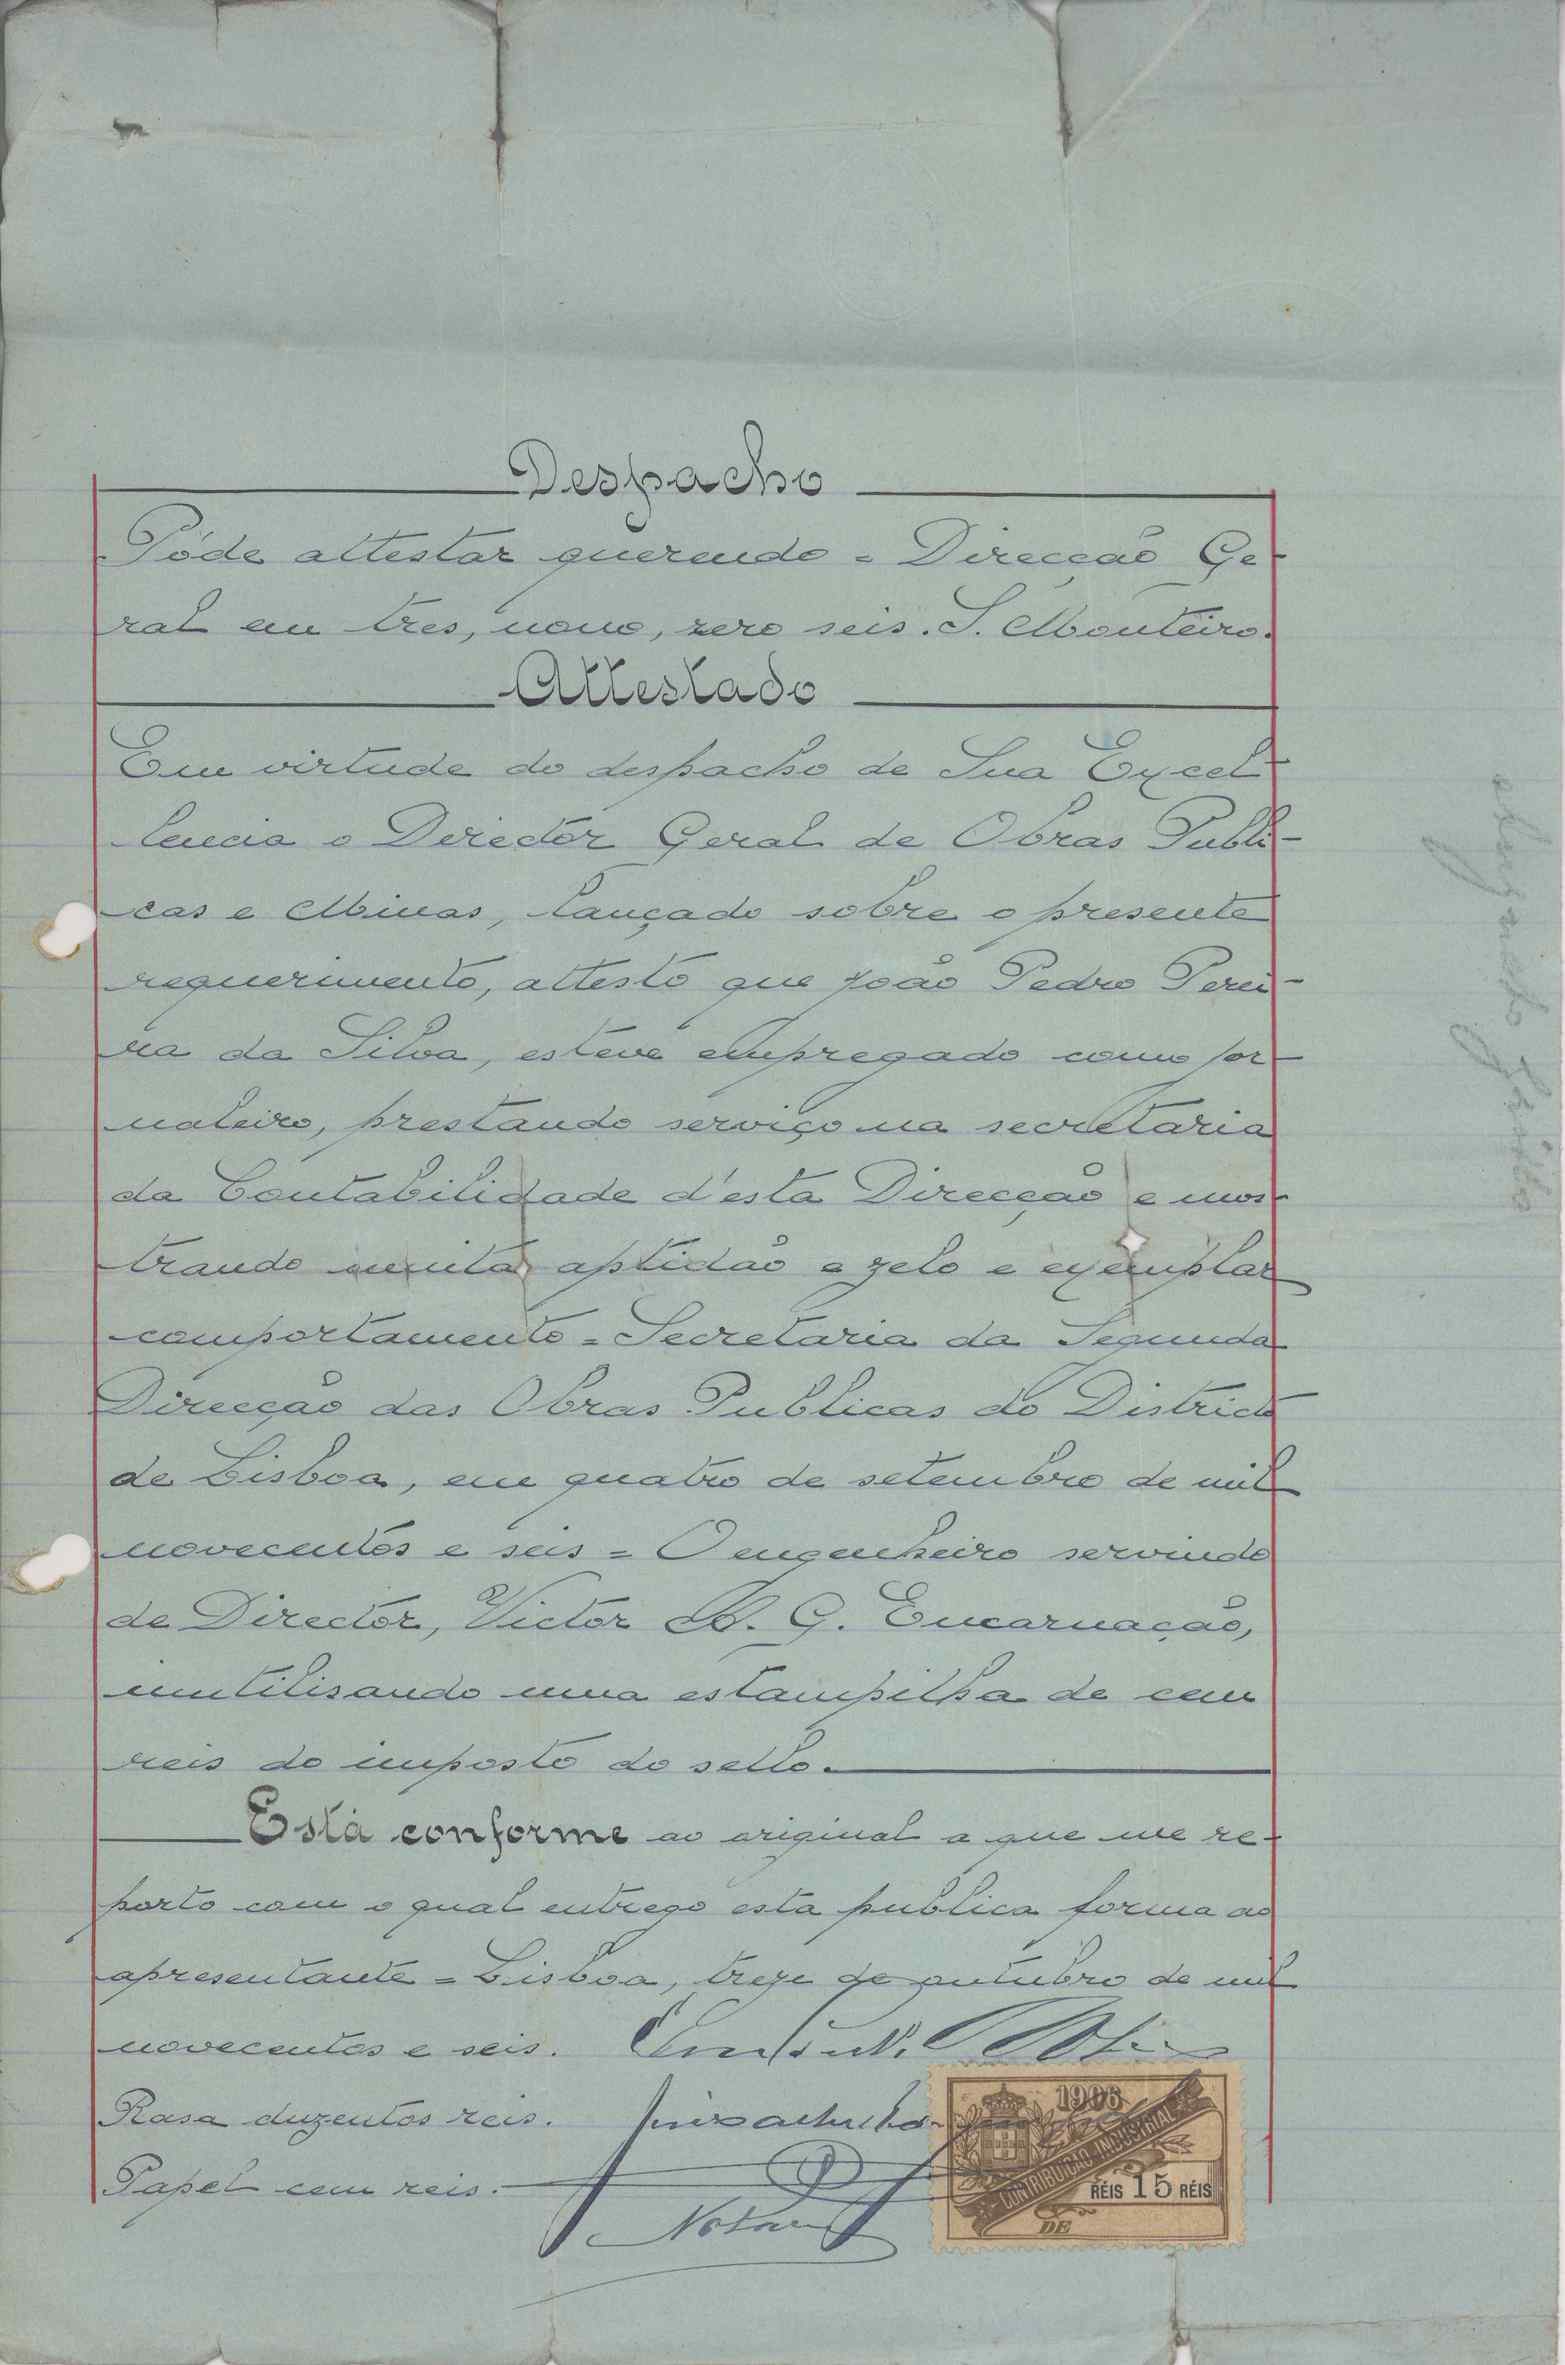 Despacho
Póde attestar querendo = Direcção Ge-
ral em tres, nono, zero seis. S. Monteiro.
Attestado
Em virtude do despacho de Sua Excel-
lencia o Derector Geral de Obras Publi-
cas e Minas, lançado sobre o presente
requerimento, attesto que João Pedro Perei-
ra da Silva, esteve empregado como jor-
naleiro, prestando serviço na secretaria
da Contabilidade d'esta Direcção e mos-
trando muita aptidão e zelo e exemplar
comportamento = Secretaria da Segunda
Direcção das Obras Publicas do Districto
de Lisboa, em quatro de setembro de mil
novecentos e seis = O engenheiro servindo
de Director, Victor G. Encarnação,
inutilisando uma estampilha de cem
reis do imposto do sello.
Está conforme ao original a que me re-
porto com o qual entrego esta publica forma ao
apresentante = Lisboa, treze de outubro de mil
novecentos e seis.
Rasa duzentos reis.
Papel cem reis.
Notario
1906
CONTRIBUIÇÃO INDUSTRIAL
RÉIS 15 RÉIS
DE